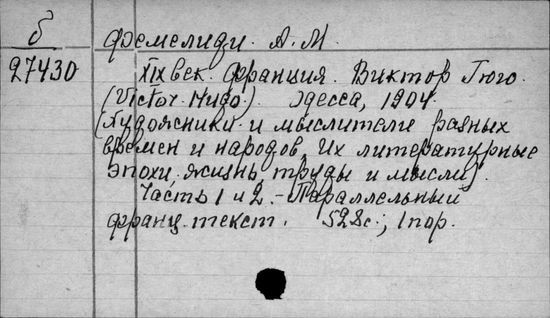 б
27430
Фемелиди. А.М.
XIX век. Франция. Виктор Гюго.
(Victor Hugo.) Одесса, 1904.
(Художники и мыслители разных
времен и народов, их литературные
эпохи жизнь труды и мысли).
Часть 1 и 2. - Параллельный
франц. текст. 528с.; 1 пор.